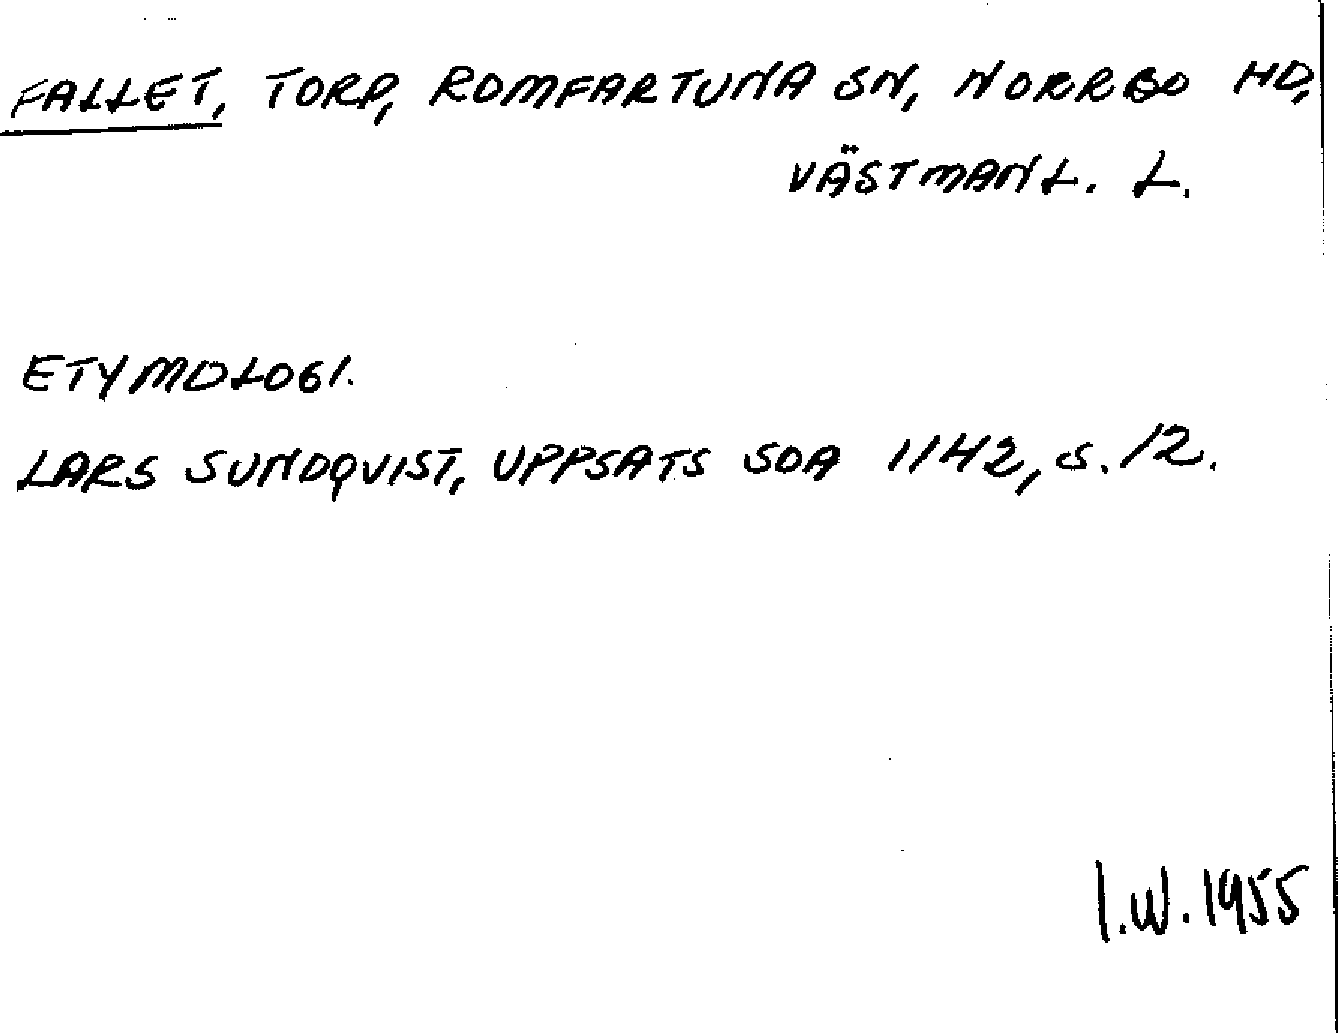 FALLET, TORP, ROMFARTUNA SN, NORRBO HD,
VÄSTMANL. L.
ETYMOLOGI.
LARS SUNDQVIST, UPPSATS SOA 1142, s. 12.
I.W. 1955